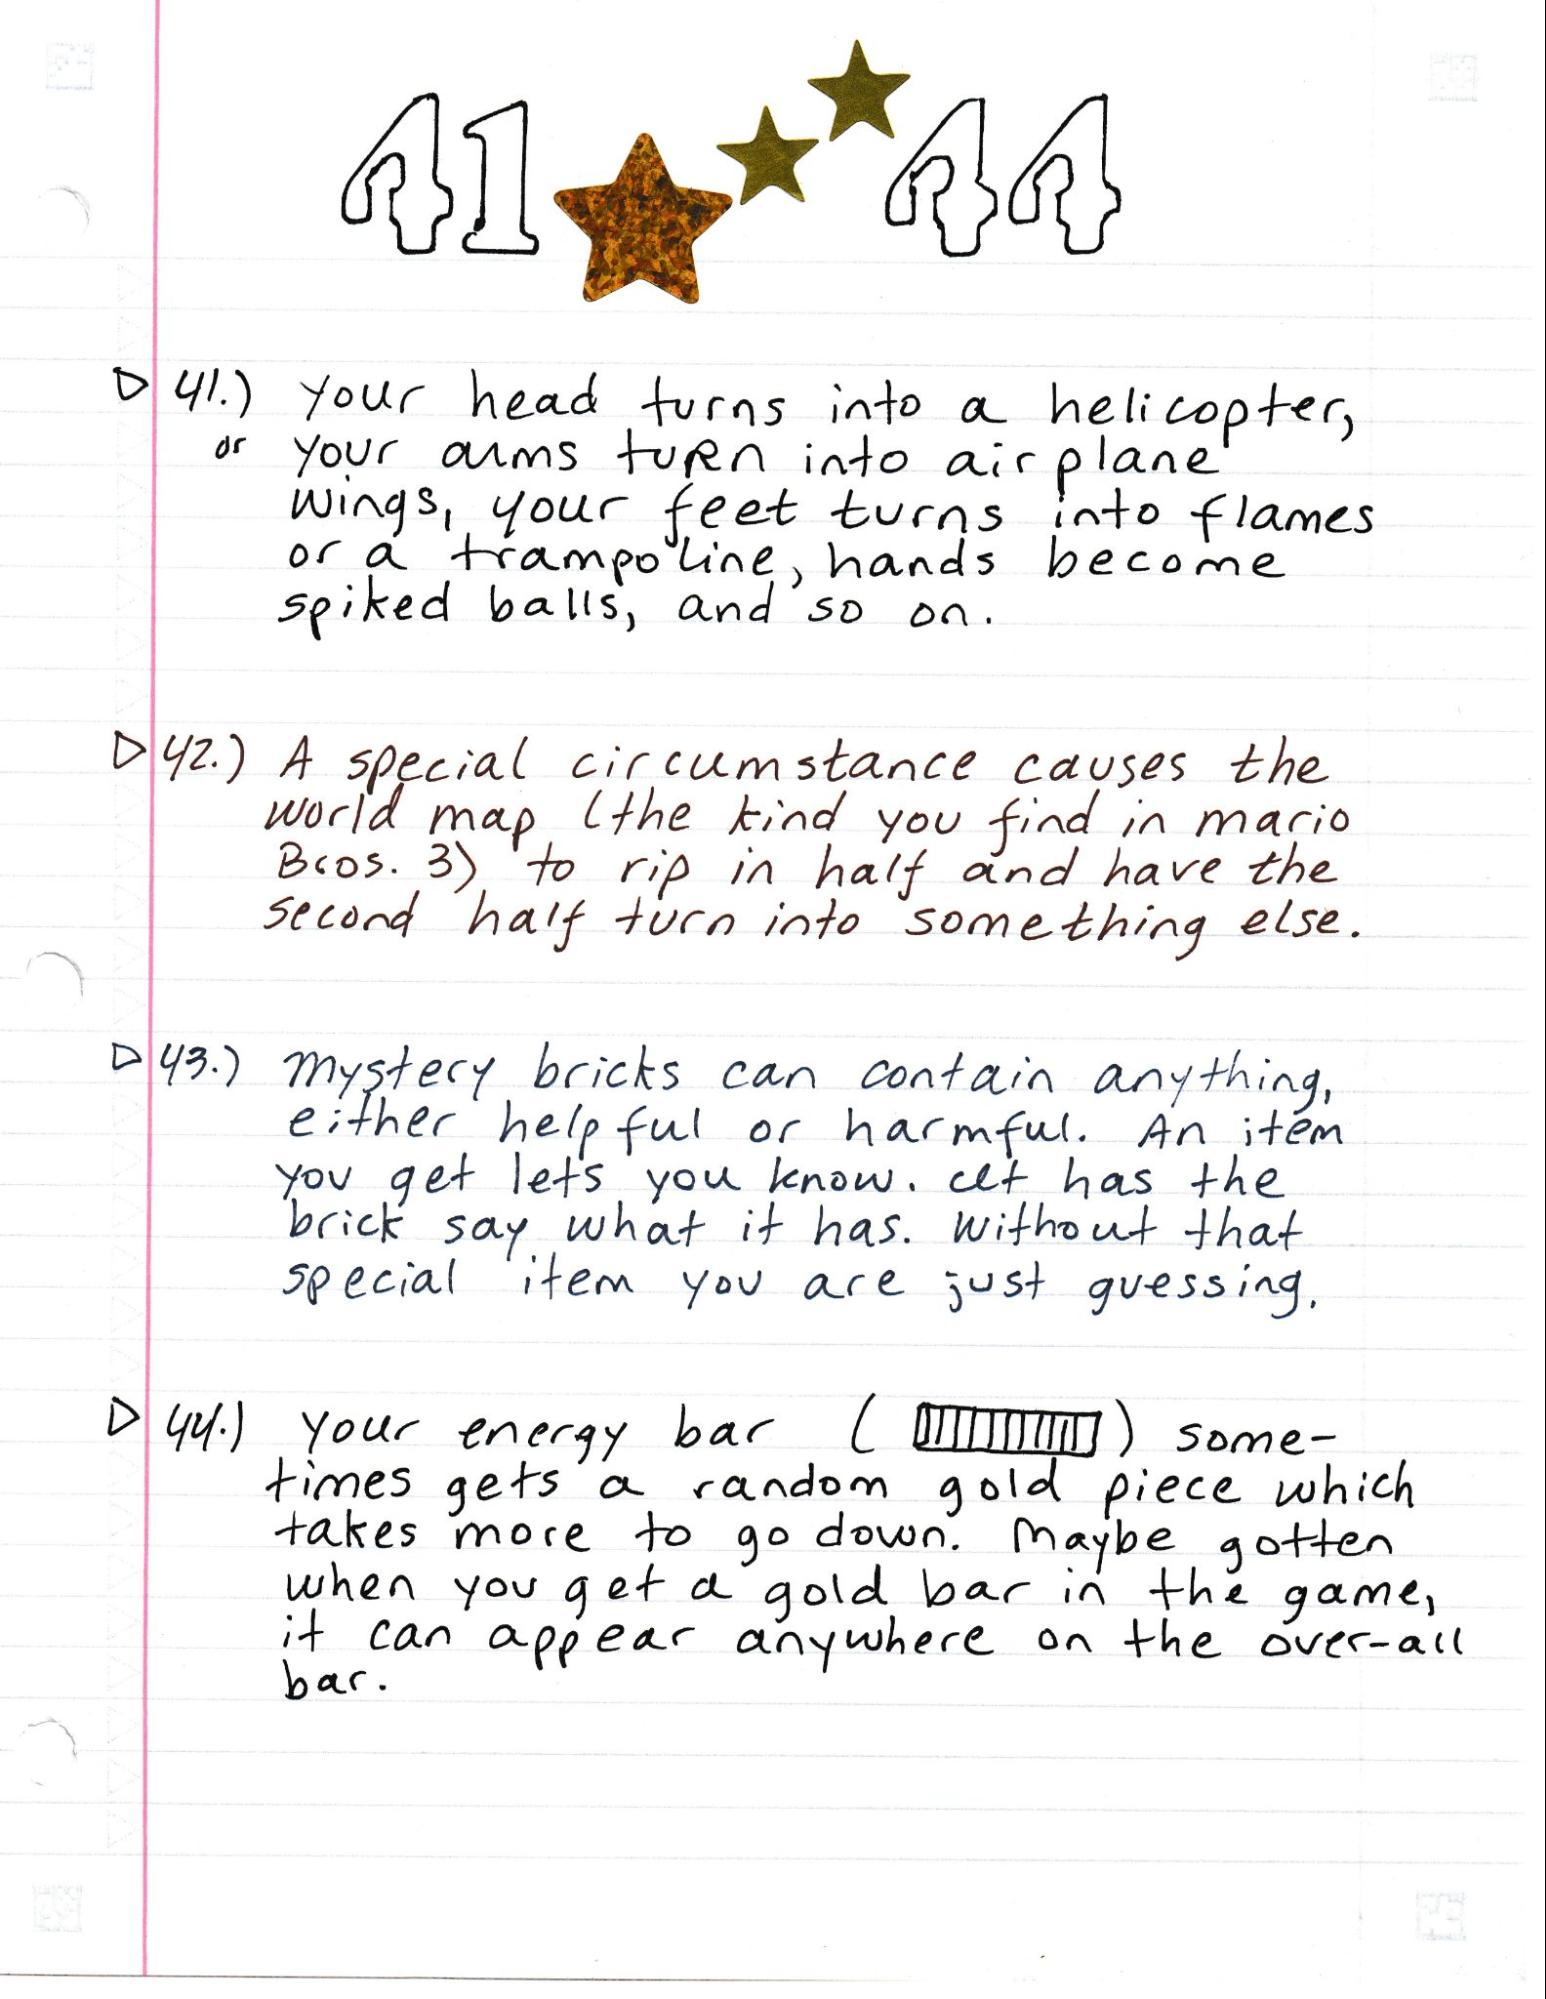 41 44
41.) your head turns into a helicopter,
or your arms turn into airplane
wings, your feet turns into flames
or a trampoline, hands become
spiked balls, and so on.
42.) A special circumstance causes the
world map (the kind you find in mario
Bros. 3) to rip in half and have the
second half turn into something else.
43.) Mystery bricks can contain anything,
either helpful or harmful. An item
you get lets you know. It has the
brick say what it has. Without that
special item you are just guessing.
44.) your energy bar ( ) some-
times gets a random gold piece which
takes more to go down. Maybe gotten
when you get a gold bar in the game,
it can appear anywhere on the over-all
bar.